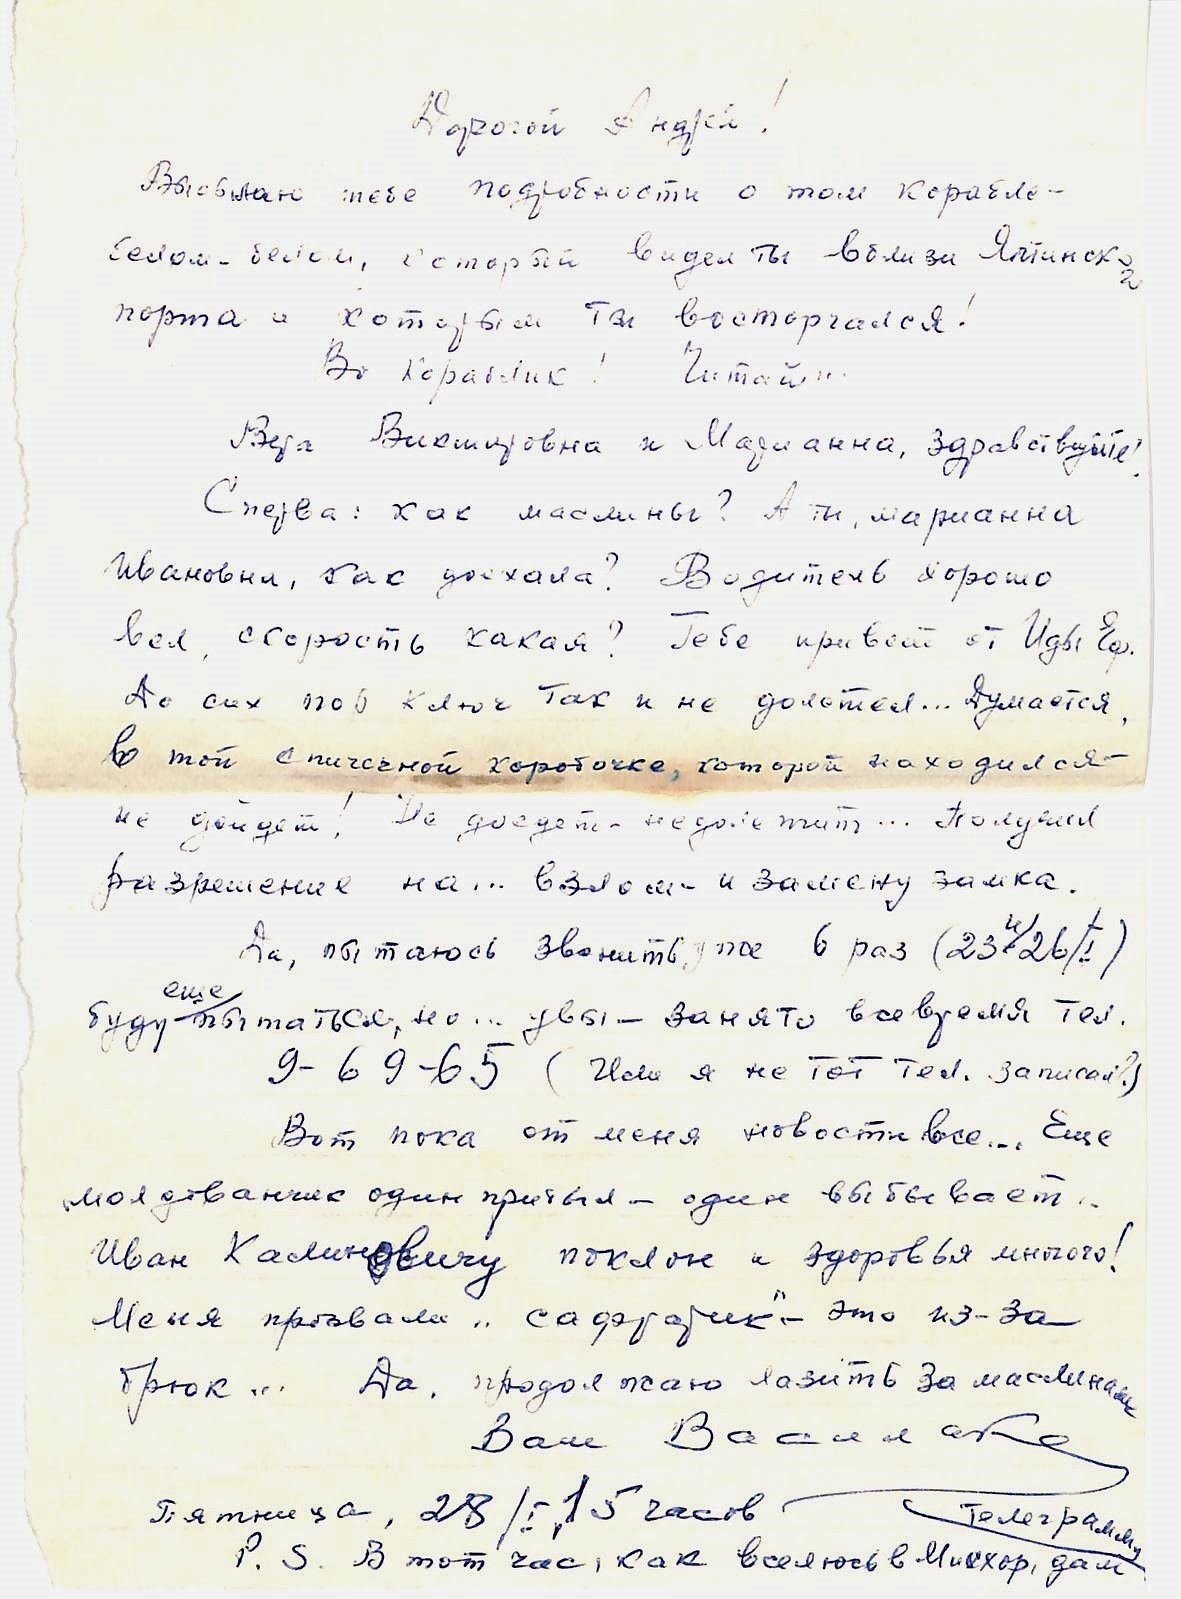 Дорогой Андрей!
Высылаю тебе подробности о том корабле-
белом-белом, который видел ты вблизи Ялтинског
порта и которым ты восторгался!
Во кораблик! Читай...
Вера Викторовна и Марианна, здравствуйте!
Сперва: как маслины? А ты, марианна
Ивановна, как доехала? Водитель хорошо
вел, скорость какая? Тебе привет от Иды Еф.
До сих пор ключ так и не долетел... Думается,
в той спичечной коробочке, которой находился-
не дойдет! Не доедет- недолетит... Получил
разрешение на... взлом- и замену замка.
Да, пытаюсь звонить уже 6 раз (23 и 26/I)
буду еще пытаться, но... увы- занято все время тел.
9-69-65 (Или я не тот тел. записал?)
Вот пока от меня новости все... Еще
молдованчик один прибыл- один выбывает..
Иван Калиновичу поклон и здоровья много!
Меня прозвали „сафарик"- это из-за
брюк... Да, продолжаю лазить за маслинами
Ваш Василake
Пятница, 28/I, 15 часов
P.S. В тот час, как вселюсь в Мисхор, дам
телеграмму